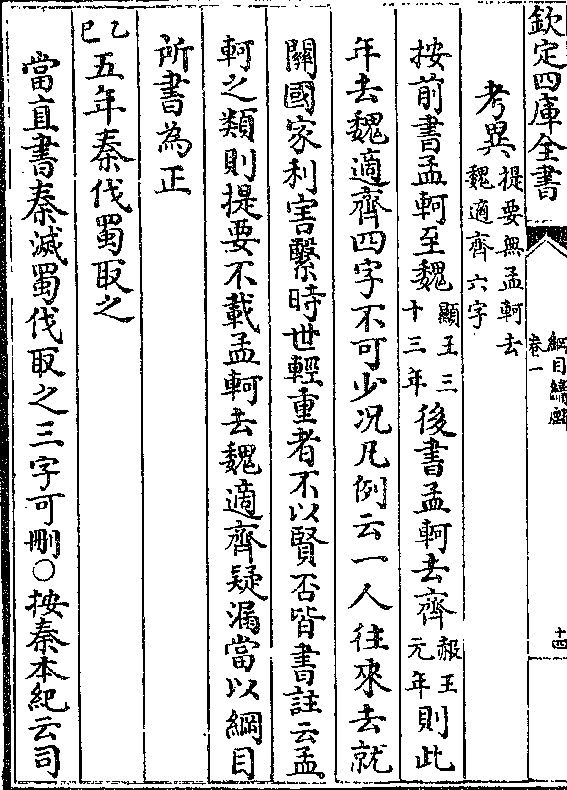 欽定四庫全書
綱目續麟
卷一
十四
考異提要無孟軻去
魏適齊六字
按前書孟軻至魏顯王三
十三年後書孟軻去齊赧王
元年則此
年去魏適齊四字不可少况凡例云一人往來去就
關國家利害繫時世輕重者不以賢否皆書註云孟
軻之類則提要不載孟軻去魏適齊疑漏當以綱目
所書為正
乙
巳五年秦伐蜀取之
當直書秦滅蜀伐取之三字可刪○按秦本紀云司